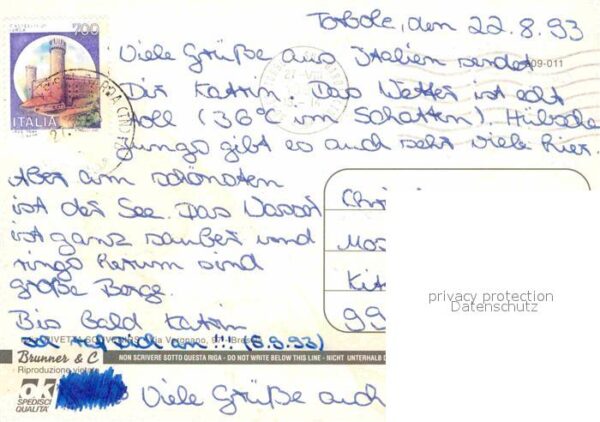 Torbole, den 22.8.93
Viele Grüße aus Italien sendet
Dir Katrin. Das Wetter ist echt
toll (36°C im Schatten). Hübsche
Jungs gibt es auch sehr viele hier.
Aber am schönsten
ist der See. Das Wasser
ist ganz sauber und
rings herum sind
große Berge.
Bis bald Katrin
Ich ruf dich an!!! (8.9.93)
Viele Grüße auch
700
ITALIA
09-011
Mos
Kit
99
privacy protection
Datenschutz
Brunner & C
Riproduzione vietata
NON SCRIVERE SOTTO QUESTA RIGA - DO NOT WRITE BELOW THIS LINE - NICHT UNTERHALB D
ok
SPEDISCI
QUALITA'